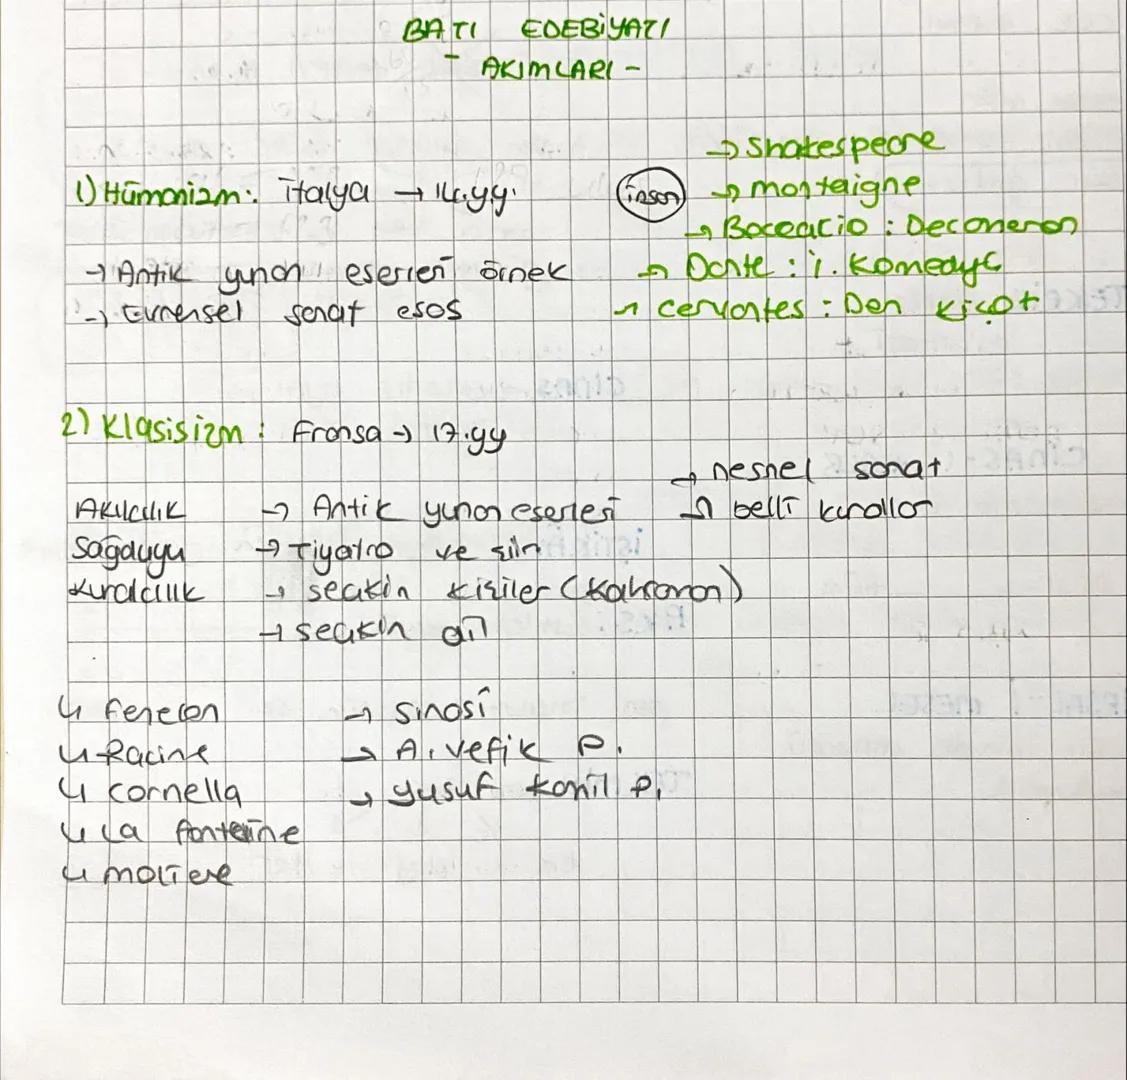 BATI EDEBİYATI
- AKIMLARI -
1) Hümanizm: İtalya → 14.yy.
insan
→ Shakespeare
→ montaigne
→ Boceacio : Decameron
→ Dante : i. Komedya
→ cervantes : Don kişot
→ Antik yunan eserleri örnek
→ Evrensel sanat esas
2) Klasisizm : Fransa → 17.yy
→ nesnel sanat
→ belli kurallar
Akılcılık → Antik yunan eserleri
Sağduyu → Tiyatro ve şiir
Kuralcılık → seçkin kişiler (kahraman)
→ seçkin dil
↳ fenelon → Şinasi
↳ Racine → A. vefik P.
↳ cornella → yusuf kamil P.
↳ La fontaine
↳ moliere